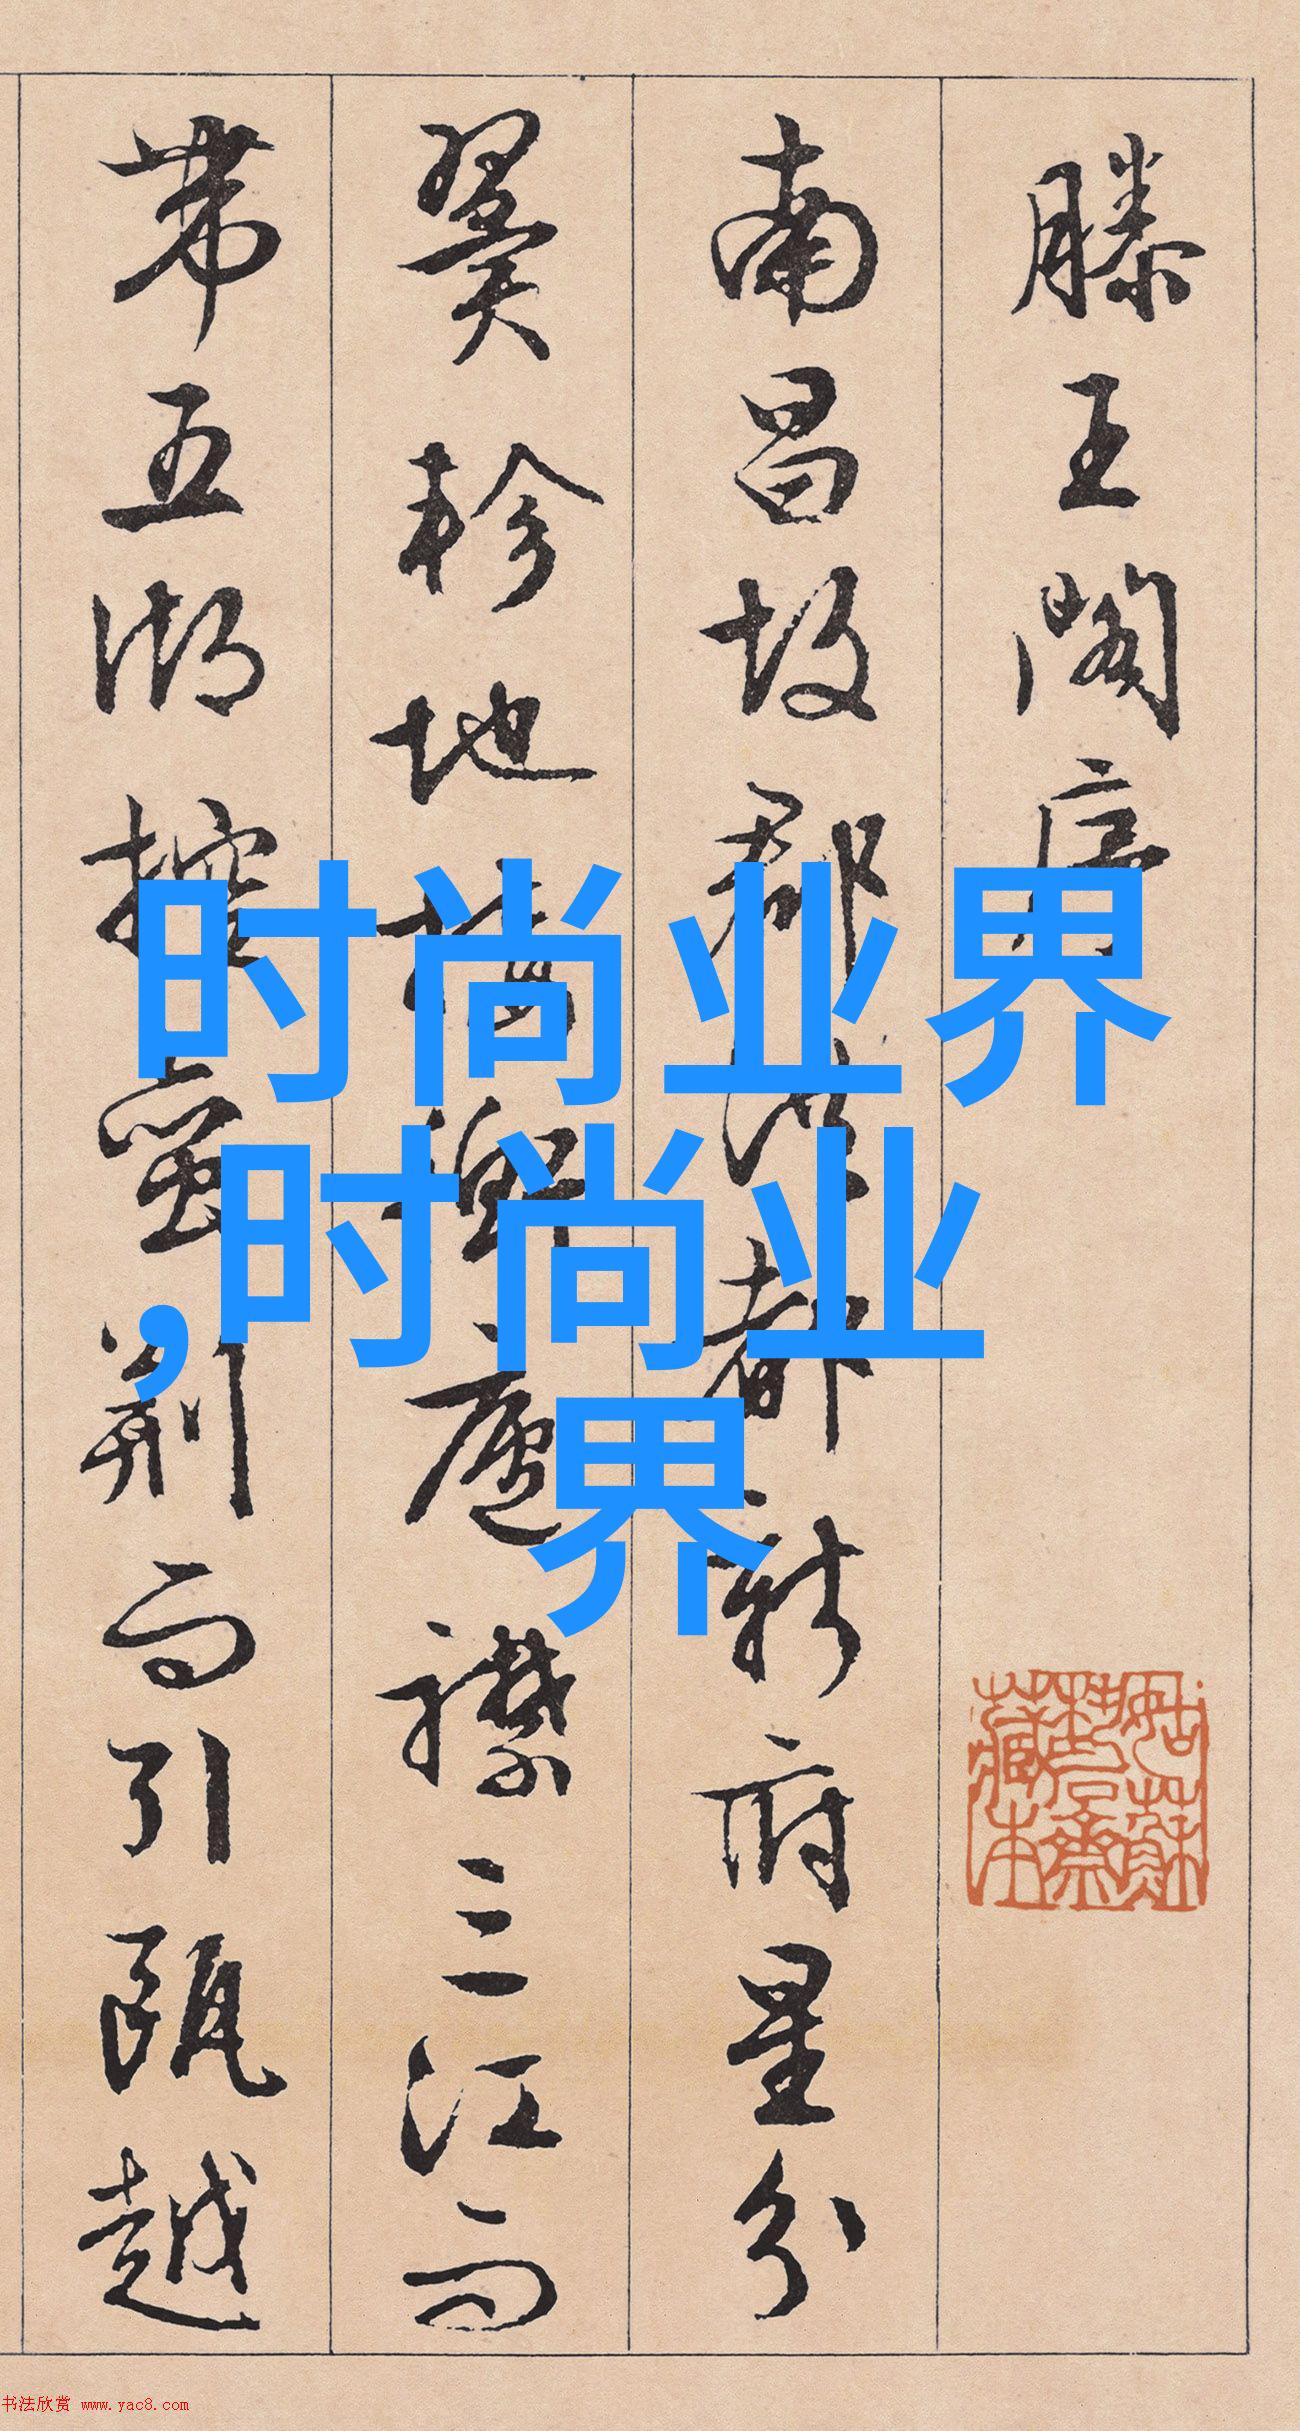 滕王閣序
南昌故郡洪都新府星分
翼軫地接衡廬襟三江而
帶五湖控蛮荆而引甌越
时尚业界
,时尚业
界
书法欣赏 www.yac8.com